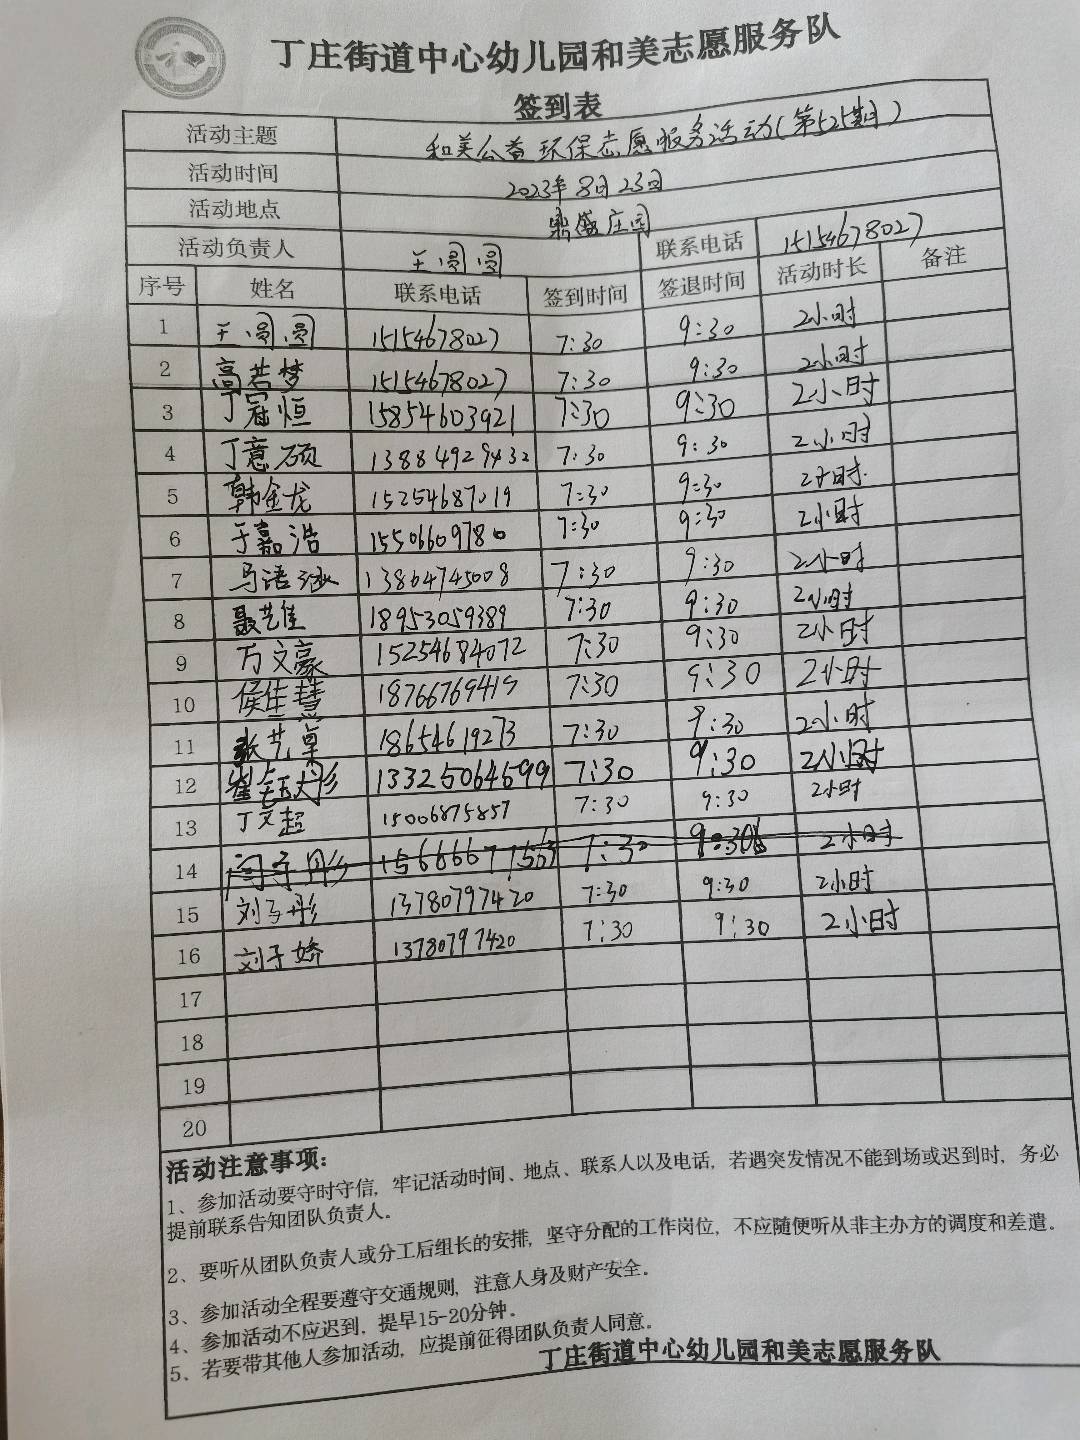 丁庄街道中心幼儿园和美志愿服务队
签到表
活动主题 和美公益环保志愿服务活动(第525期)
活动时间 2023年8月23日
活动地点 鼎盛庄园
活动负责人 王圆圆 联系电话 15154678027
序号 姓名 联系电话 签到时间 签退时间 活动时长 备注
1 王圆圆 15154678027 7:30 9:30 2小时
2 高若梦 15154678027 7:30 9:30 2小时
3 丁冠恒 15854603921 7:30 9:30 2小时
4 丁意硕 13884929432 7:30 9:30 2小时
5 韩金龙 15254687019 7:30 9:30 2小时
6 于嘉浩 15506609780 7:30 9:30 2小时
7 马语涵 13864745008 7:30 9:30 2小时
8 聂艺佳 18953059389 7:30 9:30 2小时
9 万文豪 15254684072 7:30 9:30 2小时
10 侯佳慧 18766769419 7:30 9:30 2小时
11 张艺菓 18654619273 7:30 9:30 2小时
12 崔钰彤 13325064699 7:30 9:30 2小时
13 丁文超 15006875857 7:30 9:30 2小时
14 7:30 9:30 2小时
15 刘子彤 13780797420 7:30 9:30 2小时
16 刘子娇 13780797420 7:30 9:30 2小时
17
18
19
20
活动注意事项:
1、参加活动要守时守信，牢记活动时间、地点、联系人以及电话，若遇突发情况不能到场或迟到时，务必
提前联系告知团队负责人。
2、要听从团队负责人或分工后组长的安排，坚守分配的工作岗位，不应随便听从非主办方的调度和差遣。
3、参加活动全程要遵守交通规则，注意人身及财产安全。
4、参加活动不应迟到，提早15-20分钟。
5、若要带其他人参加活动，应提前征得团队负责人同意。
丁庄街道中心幼儿园和美志愿服务队